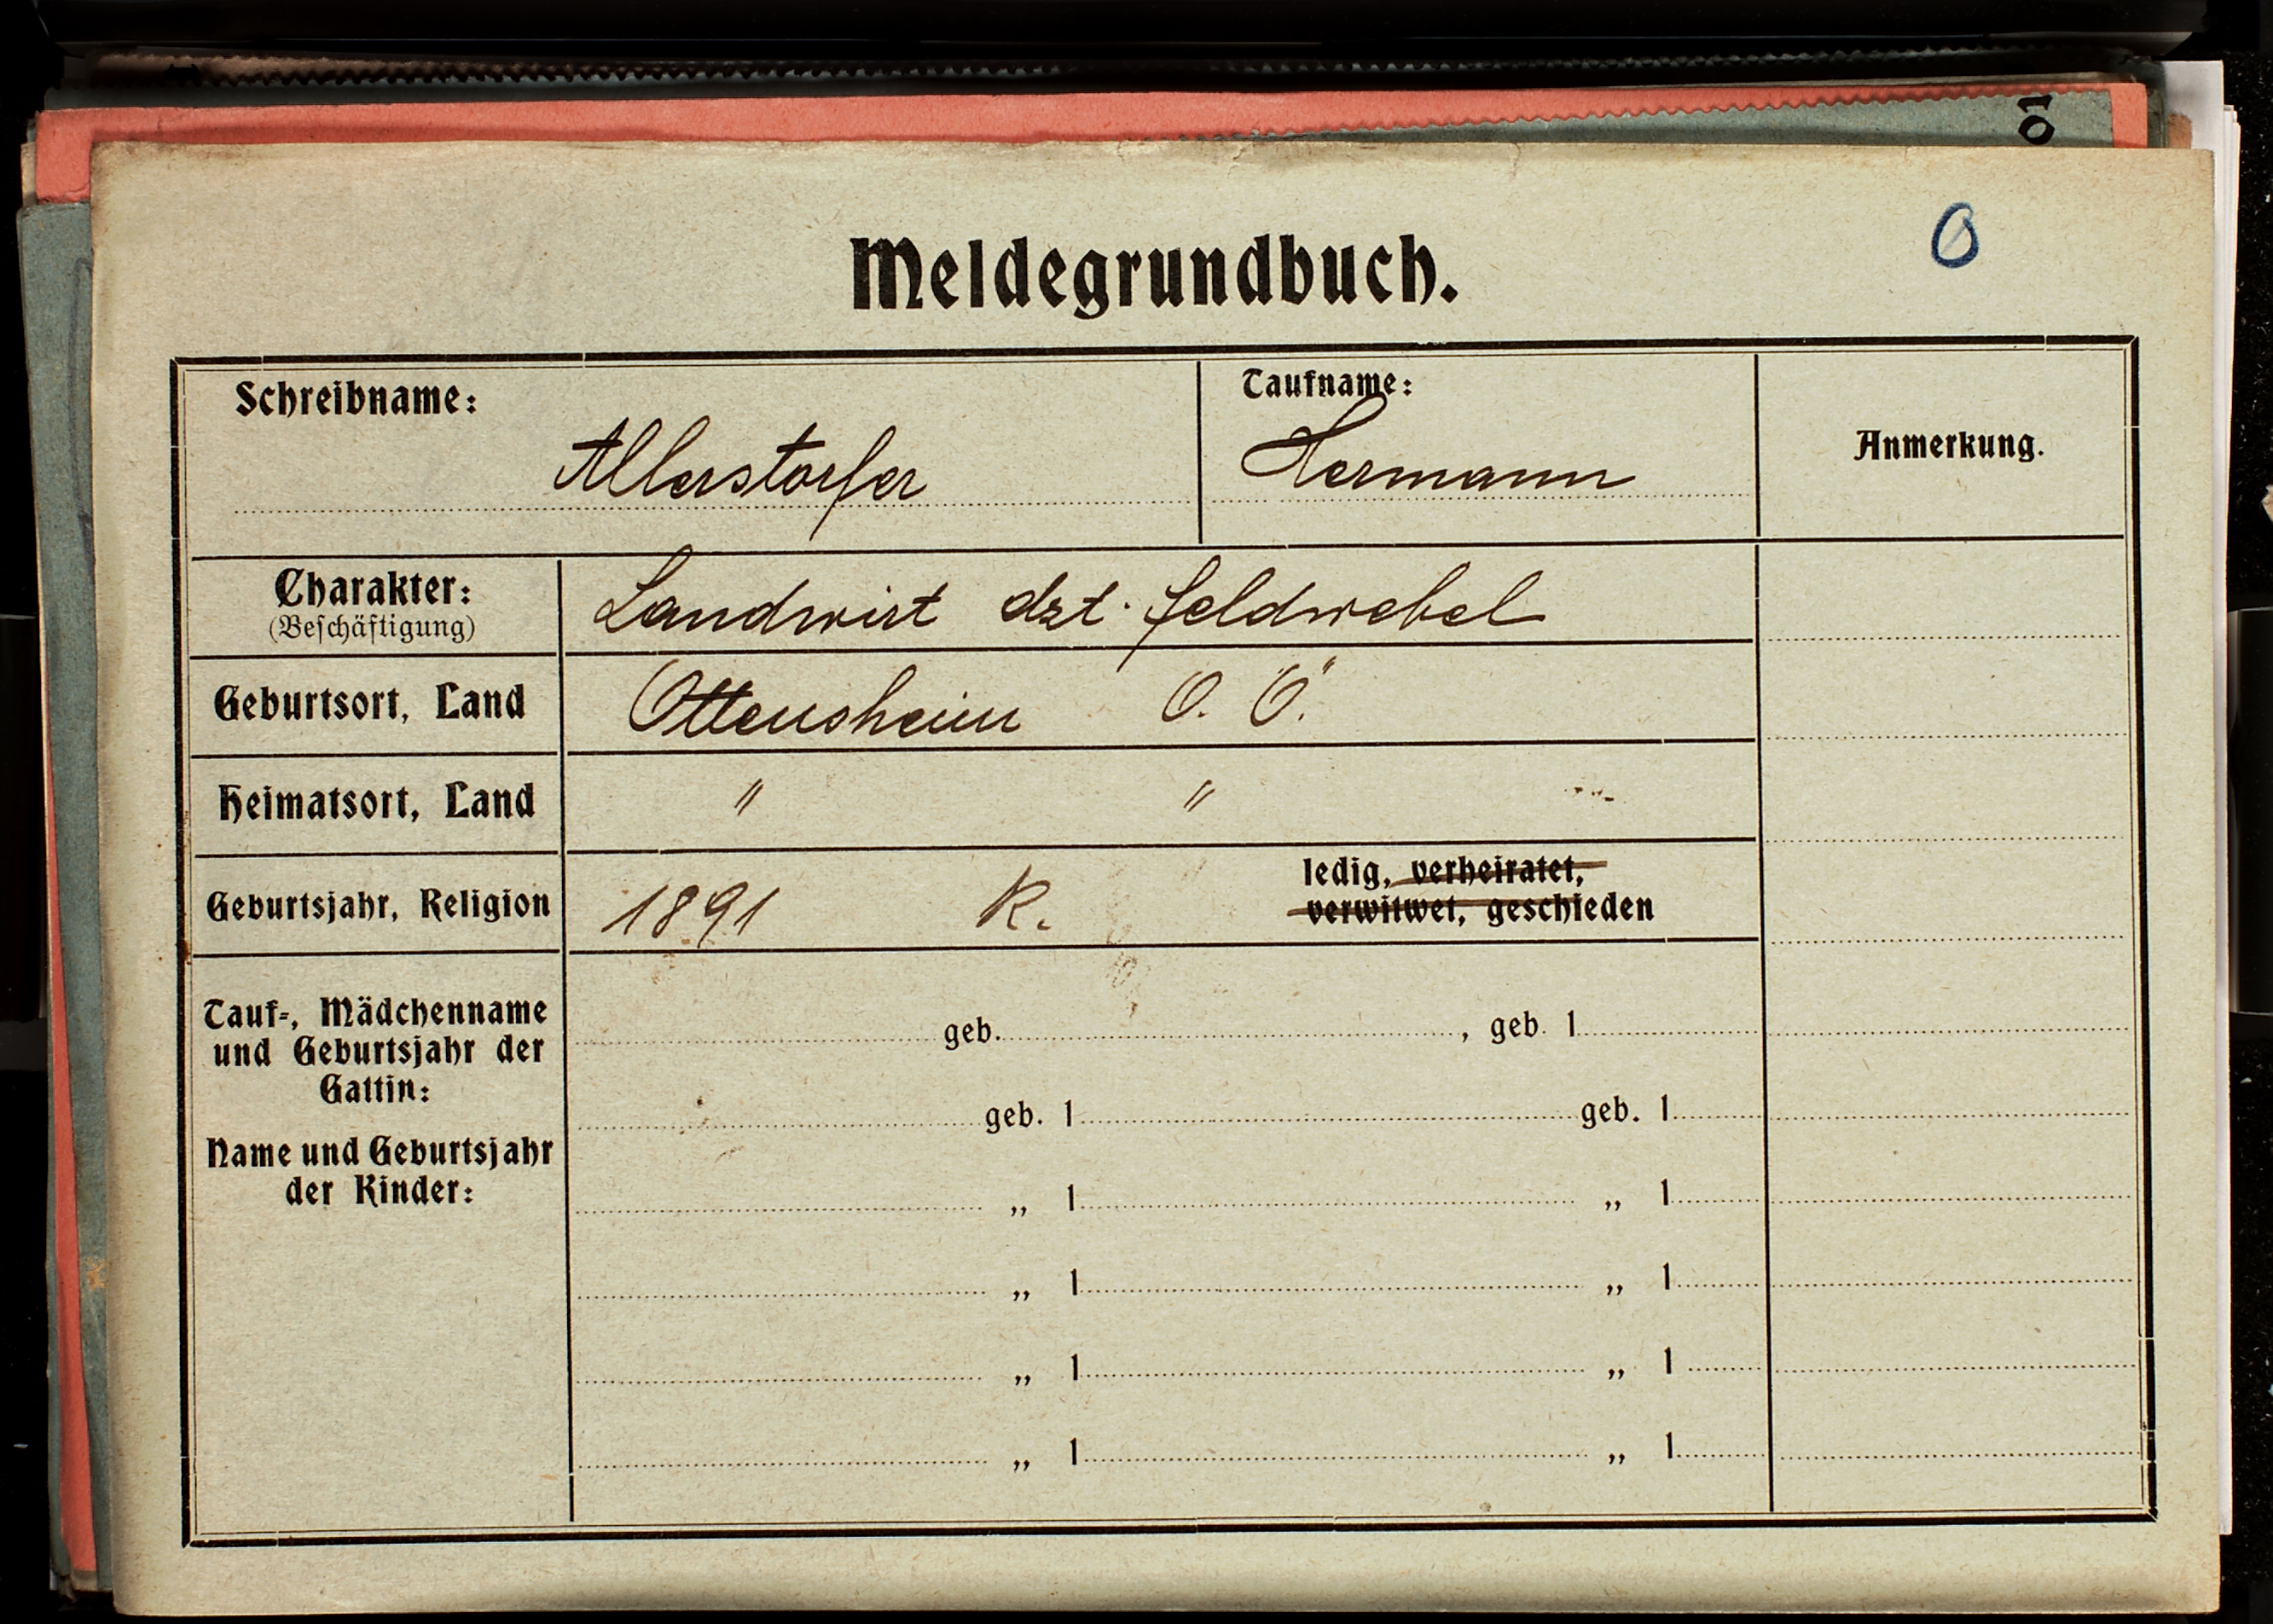 01
O
Meldegrundbuch.
Schreibname:
Allerstorfer
Taufname:
Hermann
Anmerkung.
Charakter:
(Beschäftigung)
Landwirt dzt. Feldwebel
Geburtsort, Land
Ottensheim O. Ö.
Heimatsort, Land
" "
Geburtsjahr, Religion
1891 K.
ledig, verheiratet,
verwitwet, geschieden
Tauf-, Mädchenname
und Geburtsjahr der
Gattin:
geb. , geb. 1
Name und Geburtsjahr
der Kinder:
geb. 1 geb. 1
„ 1 „ 1
„ 1 „ 1
„ 1 „ 1
„ 1 „ 1